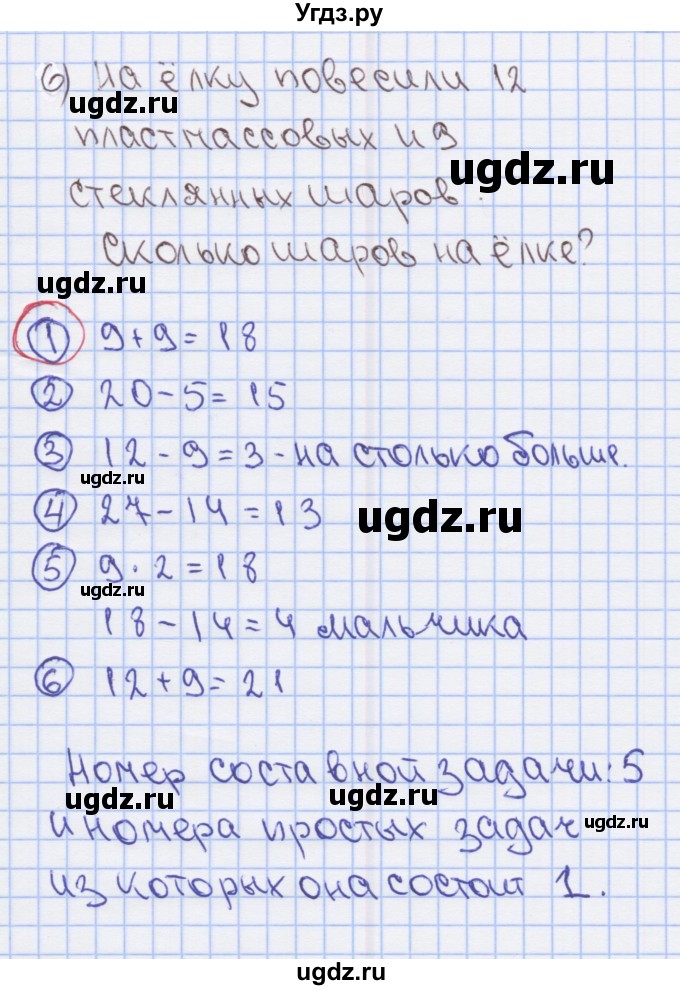 Угдз.ру
6) На ёлку повесили 12
ugdz.ru
пластмассовых и 9
ugdz.ru
стеклянных шаров.
Сколько шаров на ёлке?
ugdz.ru
1 9+9=18
2 20-5=15
3 12-9=3-на столько больше.
ugdz.ru
4 27-14=13
ugdz.ru
5 9·2=18
ugdz.ru
18-14=4 мальчика
6 12+9=21
Номер составной задачи: 5
ugdz.ru ugdz.ru
и номера простых задач ugdz.ru
из которых она состоит 1.
ugdz.ru